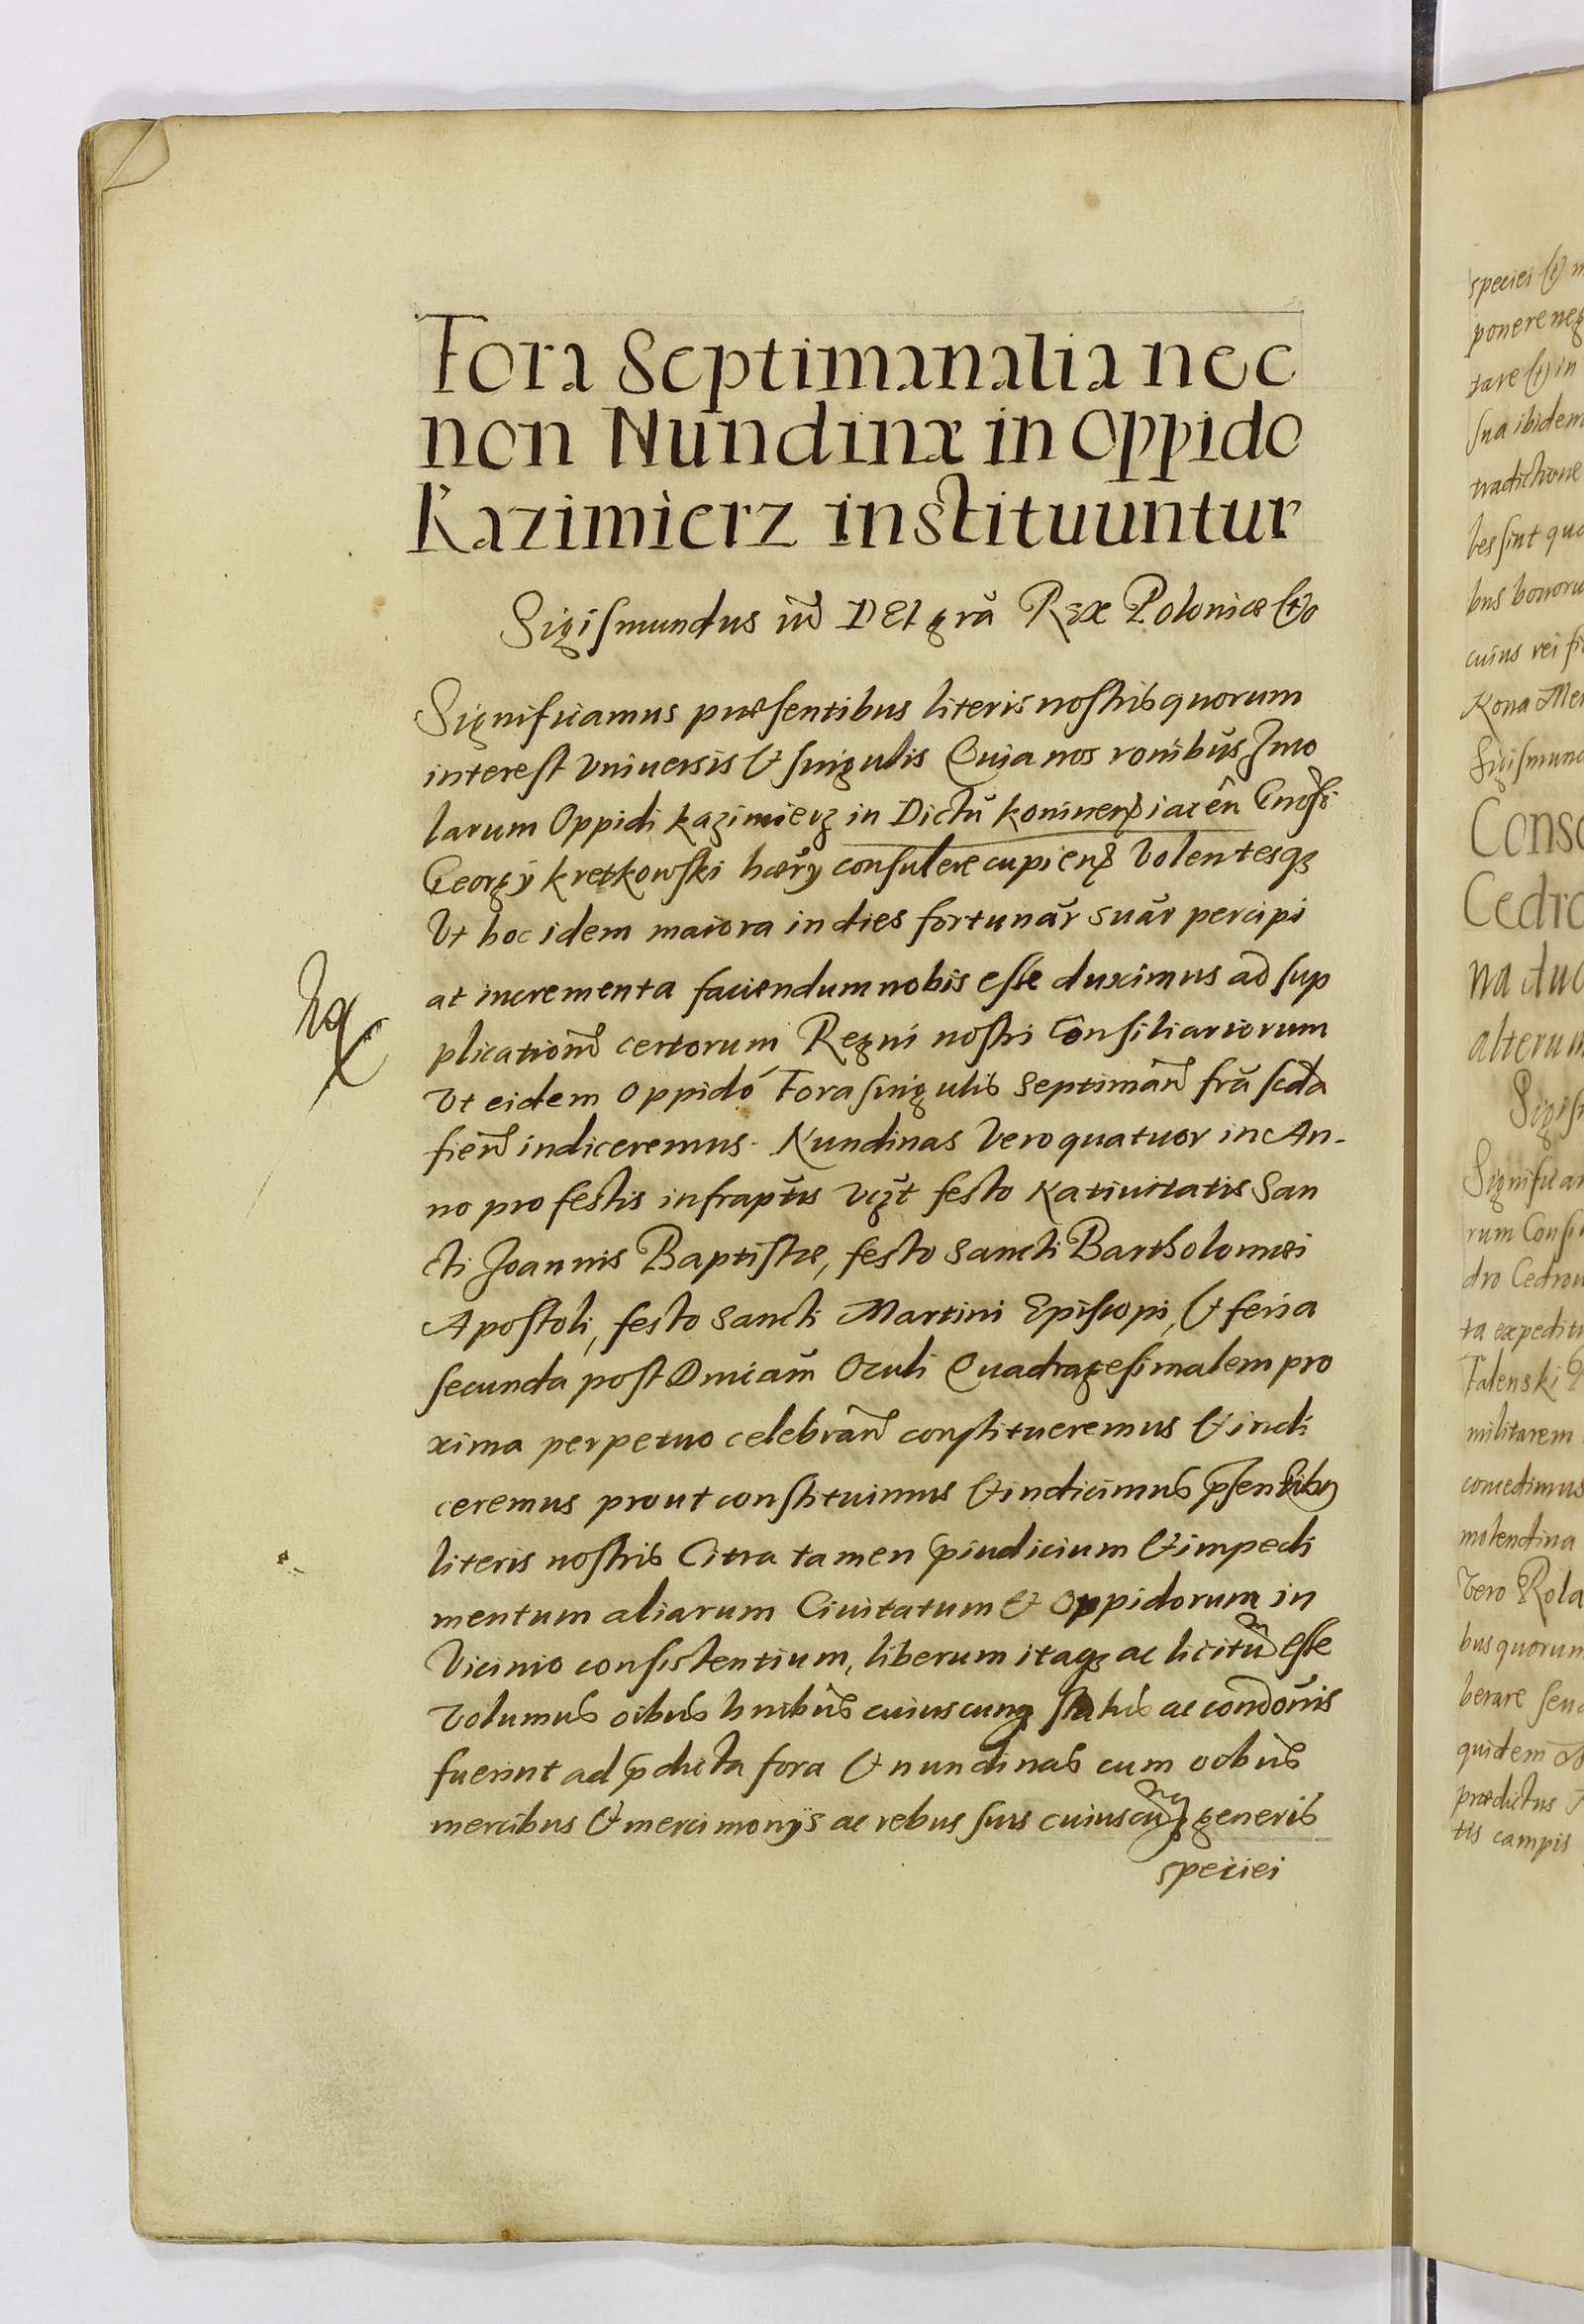 Fora Septimanalia nec
non Nundinæ in Oppido
Kazimierz instituuntur
Sigismundus DEI grã Rex Poloniæ
Significamus præsentibus literis nostris quorum
interest vniuersis et singulis Quia nos ronibus Inco
larum Oppidi Kazimierz in Dictũ koninen iacen
Georgy kretkowski hæry consulere cupien Volentesqz
Vt hoc idem maiora in dies fortunar suar percipi
at incrementa faciendum nobis esse duximus ad sup
plication certorum Regni nostri Consiliariorum
vt eidem oppido Fora singulis Septiman fra scda
fien indiceremus. Nundinas Vero quatuor in An-
no pro festis infraptis vizt festo Natiuitatis San
cti Joannis Baptistæ, festo Sancti Bartholomæi
Apostoli, festo Sancti Martini Episcopi, et feria
secunda post Dnicam Oculi Quadragesimalem pro
xima perpetuo celebran constitueremus et indi
ceremus prout constituimus et indicimus psentibus
literis nostris Citra tamen piudicium et impedi
mentum aliarum Ciuitatum et Oppidorum in
Vicinio consistentium, liberum itaqz ac licitum esse
volumus oibus hnibus cuiuscunqz status ac condonis
fuerint ad pdicta fora et nundinas cum oibus
mercibus et mercimonijs ac rebus suis cuiuscunqz generis
speciei
species
ponere neg
tare in
sua ibidem
tradictione
les sint quo
bus bonoru
cuius rei fi
Rona Mer
Sigismund
Conse
Cedro
na duo
alterum
Sigis
Significam
rum Consi
dro Cedrow
ta expediti
Talenski
militarem
concedimus
molendina
Vero Rola
bus quorum
berare seu
quidem
prædictus
tis campis